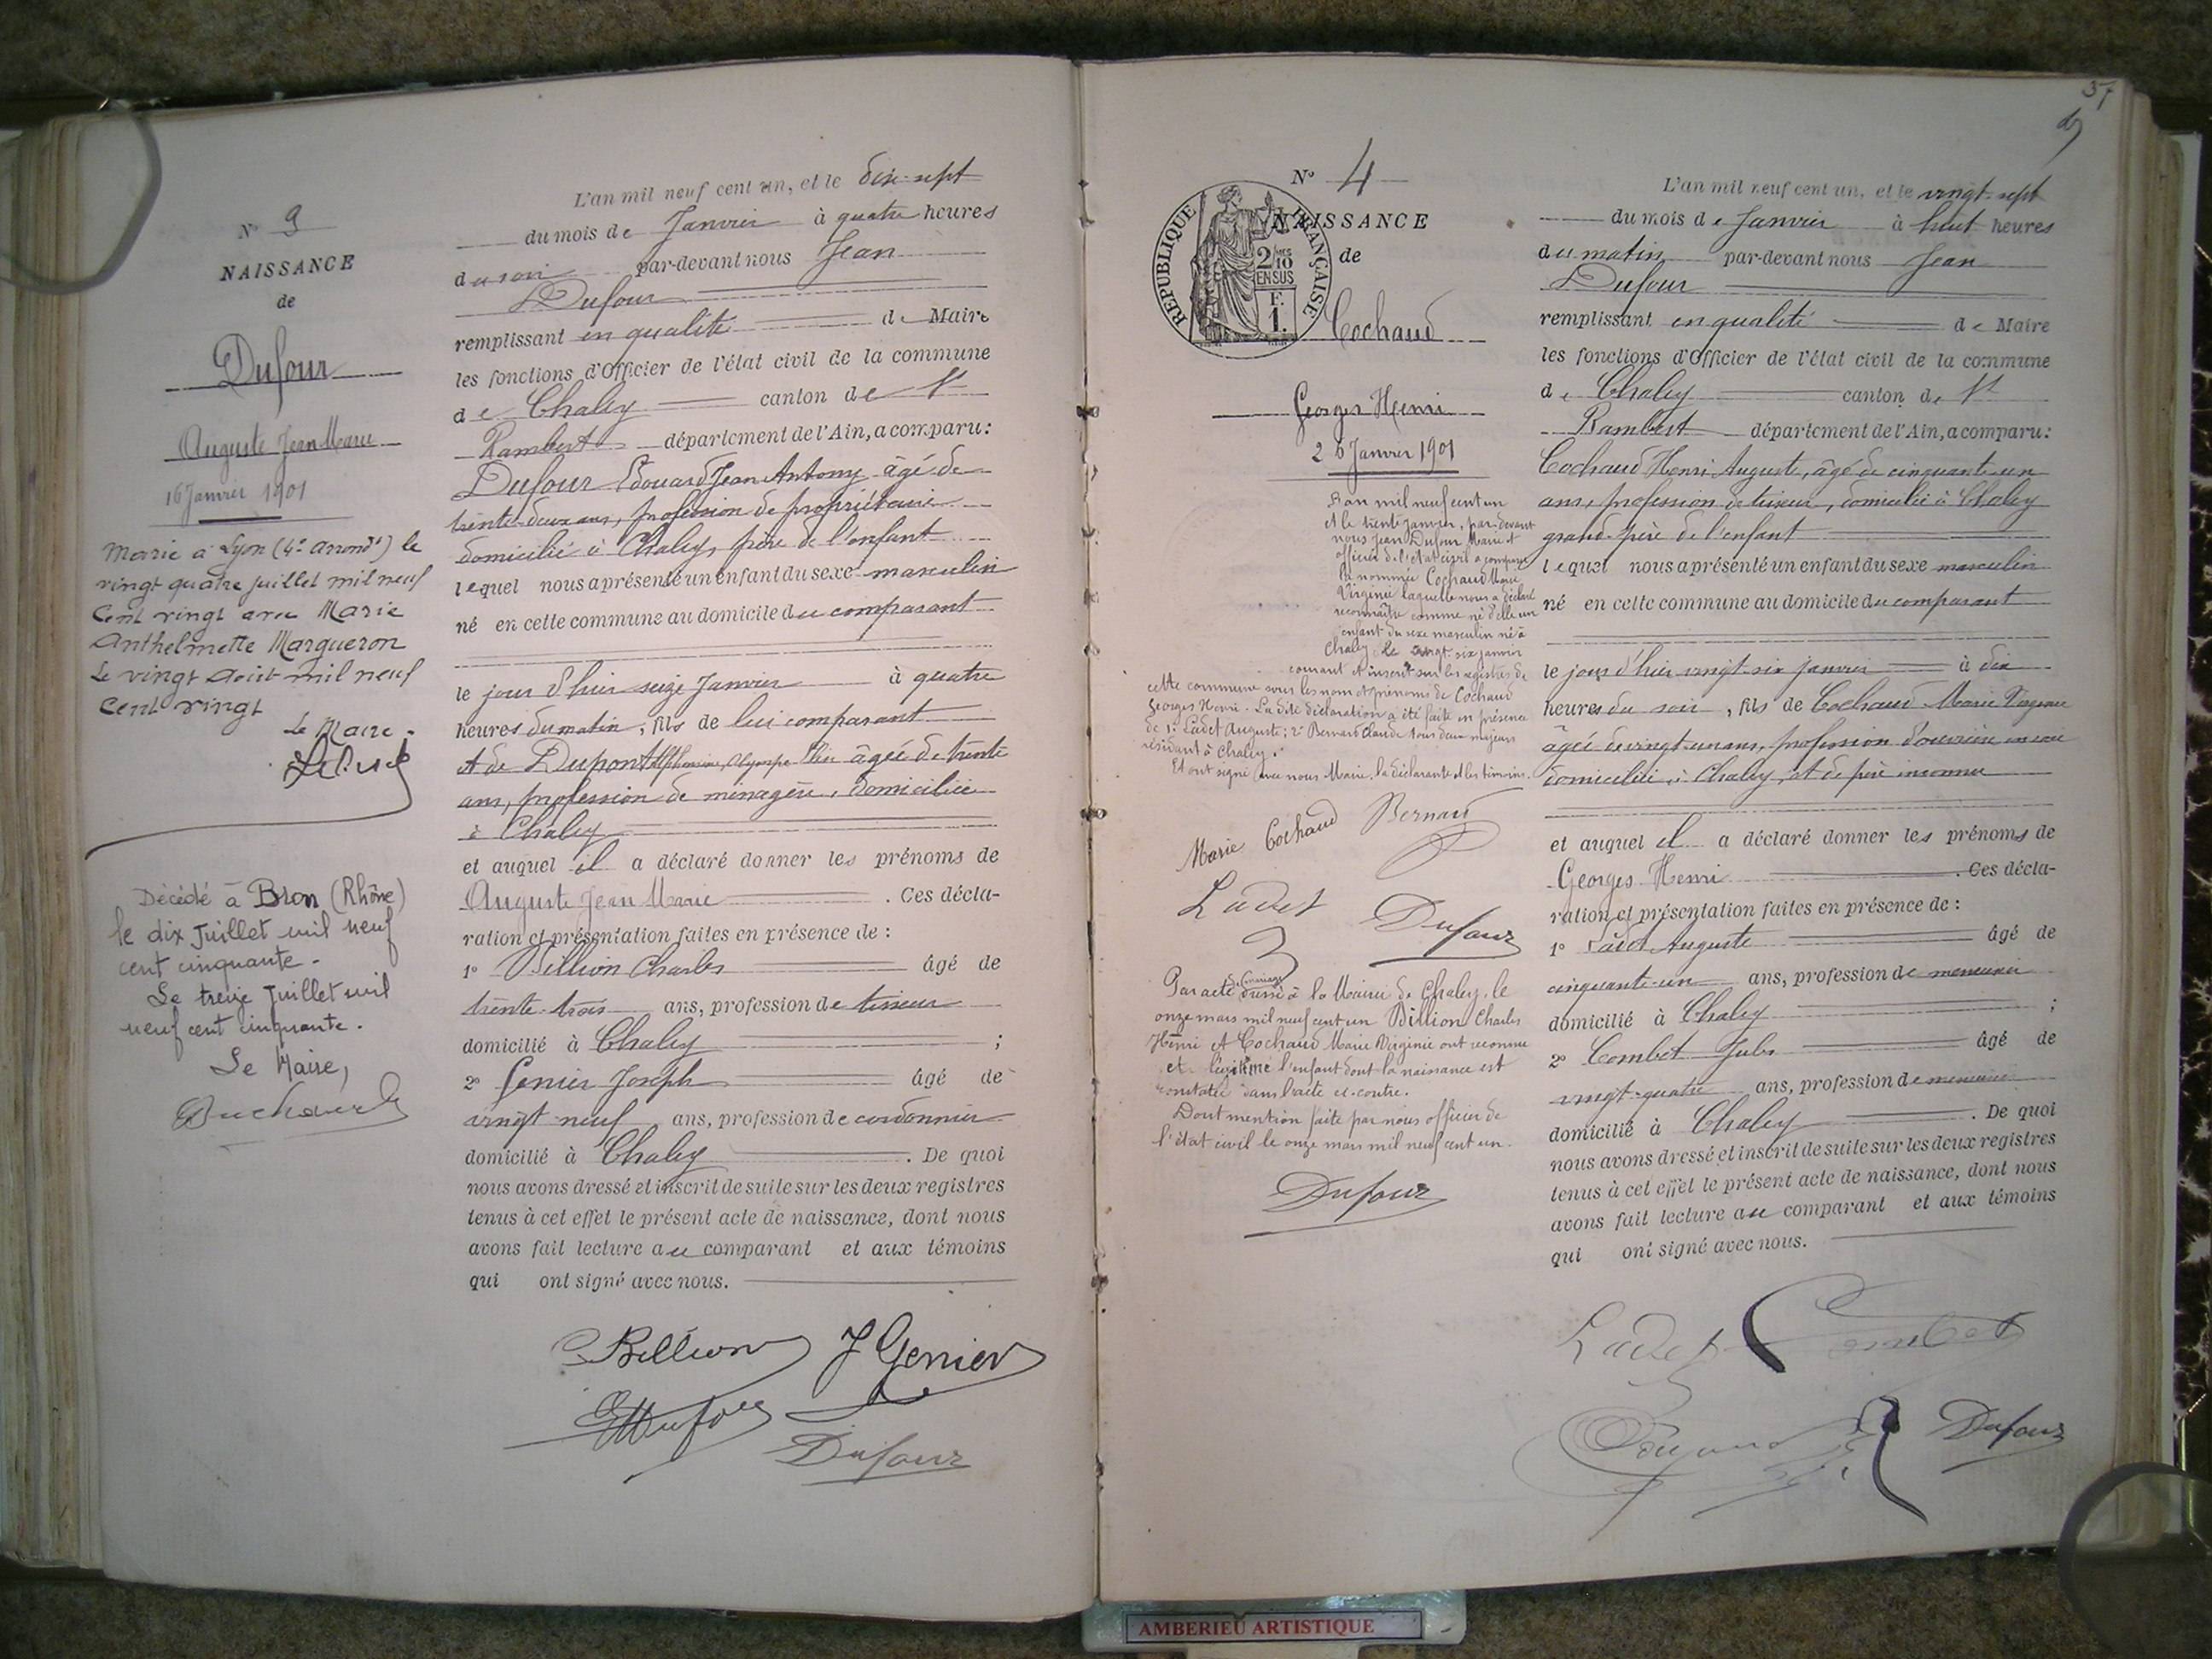 N° 3
NAISSANCE
de
Dufour
Auguste Jean Marie
16 Janvier 1901
Marié à Lyon (4e arrondt) le
vingt quatre juillet mil neuf
Cent vingt avec Marie
Anthelmette Margueron
Le vingt Août mil neuf
Cent vingt
Le Maire.
Décédé à Bron (Rhône)
le dix Juillet mil neuf
cent cinquante.
Le treize Juillet mil
neuf cent cinquante.
Le Maire,
L'an mil neuf cent un, et le dix-sept
du mois de Janvier à quatre heures
du soir par-devant nous Jean
Dufour
remplissant en qualité de Maire
les fonctions d'Officier de l'état civil de la commune
de Chaley canton de St
Rambert département de l'Ain, a comparu:
Dufour Edouard Jean Antony âgé de
trente-deux ans, profession de propriétaire
domicilié à Chaley, père de l'enfant
lequel nous a présenté un enfant du sexe masculin
né en cette commune au domicile du comparant
le jour d'hier seize Janvier à quatre
heures du matin, fils de lui comparant
et de Dupont Olympe âgée de trente
ans, profession de ménagère, domiciliée
à Chaley
et auquel il a déclaré donner les prénoms de
Auguste Jean Marie. Ces décla-
ration et présentation faites en présence de :
1° Billion Charles âgé de
trente-trois ans, profession de tisseur
domicilié à Chaley ;
2° Genier Joseph âgé de
vingt-neuf ans, profession de cordonnier
domicilié à Chaley. De quoi
nous avons dressé et inscrit de suite sur les deux registres
tenus à cet effet le présent acte de naissance, dont nous
avons fait lecture au comparant et aux témoins
qui ont signé avec nous.
C. Billion J Genier
E Dufour
Dufour
51
N° 4
NAISSANCE
de
REPUBLIQUE FRANÇAISE
2/10 MES
EN SUS
F.
1.
Cochaud
Georges Henri
26 Janvier 1901
L'an mil neuf cent un
et le trente janvier, par-devant
nous Jean Dufour Maire et
officier de l'état civil a comparu
la nommée Cochaud Marie
Virginie laquelle nous a déclaré
reconnaître comme né d'elle un
enfant du sexe masculin né à
Chaley le vingt-six janvier
courant et inscrit sur les registres de
cette commune sous les nom et prénoms de Cochaud
Georges Henri. La dite déclaration a été faite en présence
de 1° Ladet Auguste; 2° Bernard Claude tous deux majeurs
résidant à Chaley.
Et ont signé avec nous Maire, la déclarante et les témoins.
Marie Cochaud Bernard
Ladet Dufour
Par acte de mariage dressé à la Mairie de Chaley, le
onze mars mil neuf cent un Billion Charles
Henri et Cochaud Marie Virginie ont reconnu
et légitimé l'enfant dont la naissance est
constatée dans l'acte ci-contre.
Dont mention faite par nous officier de
l'état civil le onze mars mil neuf cent un.
Dufour
L'an mil neuf cent un, et le vingt-sept
du mois de Janvier à huit heures
du matin par-devant nous Jean
Dufour
remplissant en qualité de Maire
les fonctions d'Officier de l'état civil de la commune
de Chaley canton de St
Rambert département de l'Ain, a comparu:
Cochaud Henri Auguste, âgé de cinquante-un
ans, profession de tisseur, domicilié à Chaley
grand-père de l'enfant
lequel nous a présenté un enfant du sexe masculin
né en cette commune au domicile du comparant
le jour d'hier vingt-six janvier à dix
heures du soir, fils de Cochaud Marie Virginie
âgée de vingt-un ans, profession d'ouvrière en soie
domiciliée à Chaley, et de père inconnu
et auquel il a déclaré donner les prénoms de
Georges Henri. Ces décla-
ration et présentation faites en présence de :
1° Ladet Auguste âgé de
cinquante-un ans, profession de menuisier
domicilié à Chaley ;
2° Combet Jules âgé de
vingt-quatre ans, profession de menuisier
domicilié à Chaley. De quoi
nous avons dressé et inscrit de suite sur les deux registres
tenus à cet effet le présent acte de naissance, dont nous
avons fait lecture au comparant et aux témoins
qui ont signé avec nous.
Ladet Combet
Dufour
AMBERIEU ARTISTIQUE